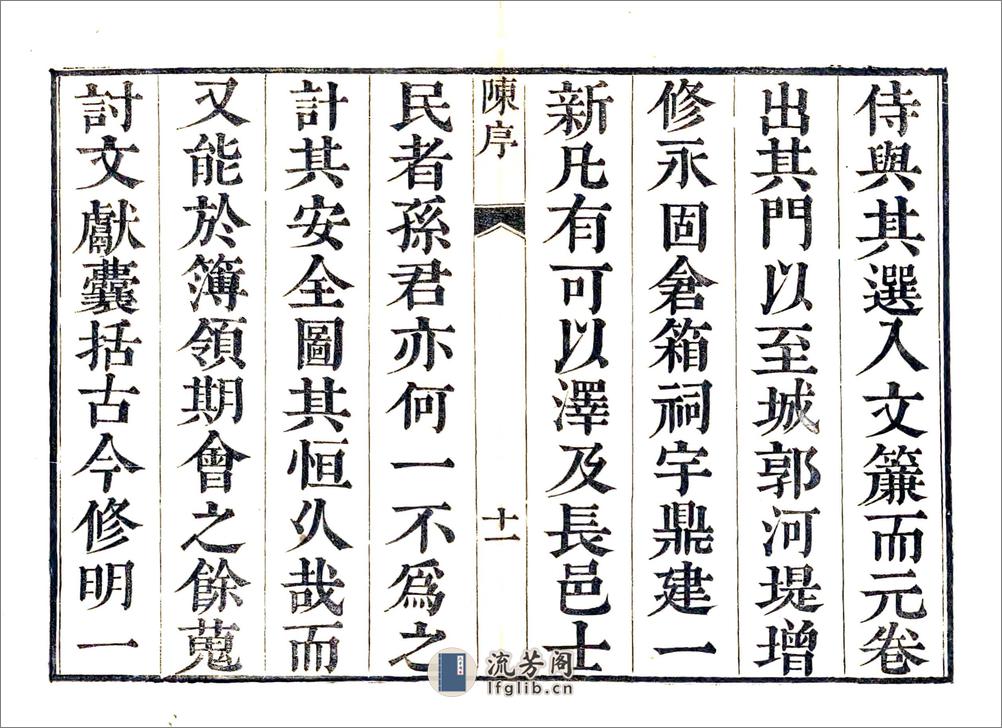 侍與其選入文簾而元卷
出其門以至城郭河堤增
修永固倉箱祠宇鼎建一
新凡有可以澤及長邑士
陳序
十一
民者孫君亦何一不爲之
計其安全圖其恒久哉而
又能於簿領期會之餘蒐
討文獻囊括古今修明一
流芳阁
lfglib.cn